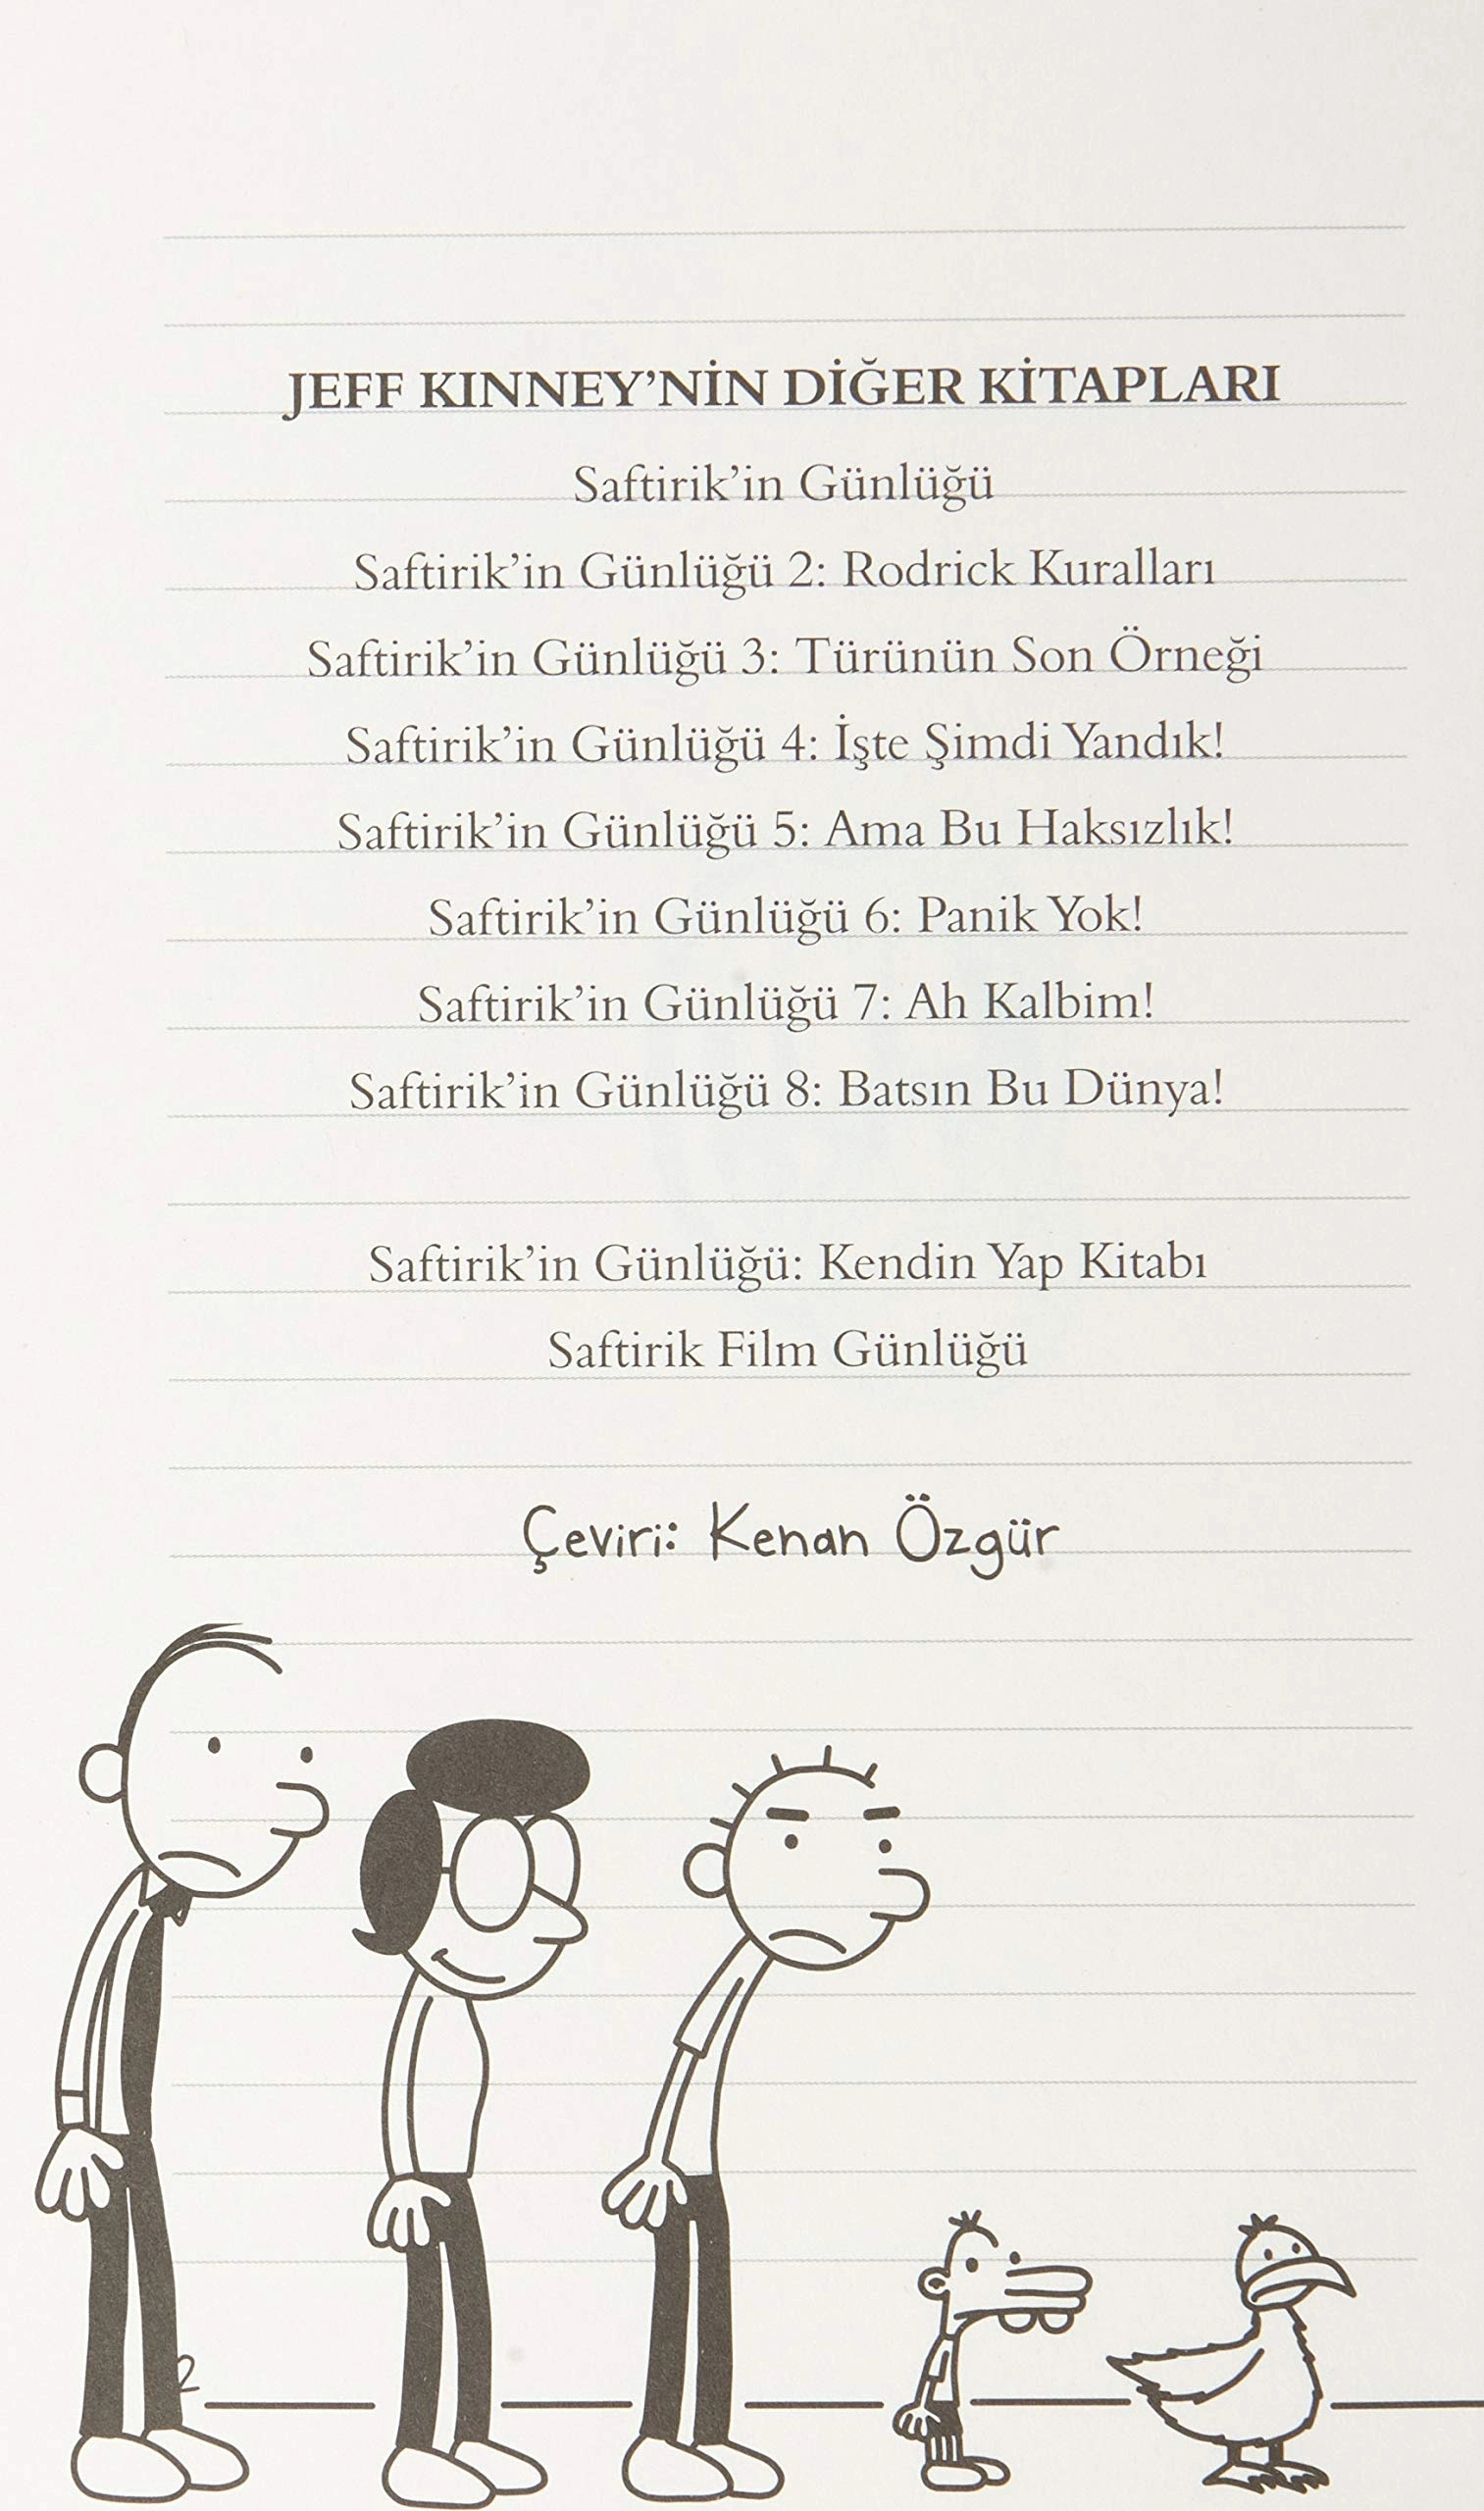 JEFF KINNEY’NİN DİĞER KİTAPLARI
Saftirik’in Günlüğü
Saftirik’in Günlüğü 2: Rodrick Kuralları
Saftirik’in Günlüğü 3: Türünün Son Örneği
Saftirik’in Günlüğü 4: İşte Şimdi Yandık!
Saftirik’in Günlüğü 5: Ama Bu Haksızlık!
Saftirik’in Günlüğü 6: Panik Yok!
Saftirik’in Günlüğü 7: Ah Kalbim!
Saftirik’in Günlüğü 8: Batsın Bu Dünya!
Saftirik’in Günlüğü: Kendin Yap Kitabı
Saftirik Film Günlüğü
Çeviri: Kenan Özgür
2